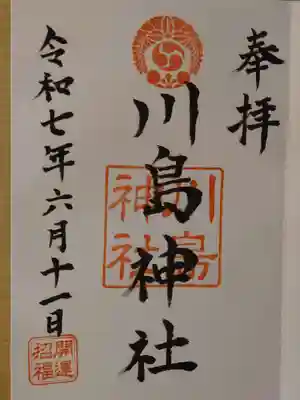 奉拝
川島神社
川島
神社
令和七年六月十一日
開運
招福